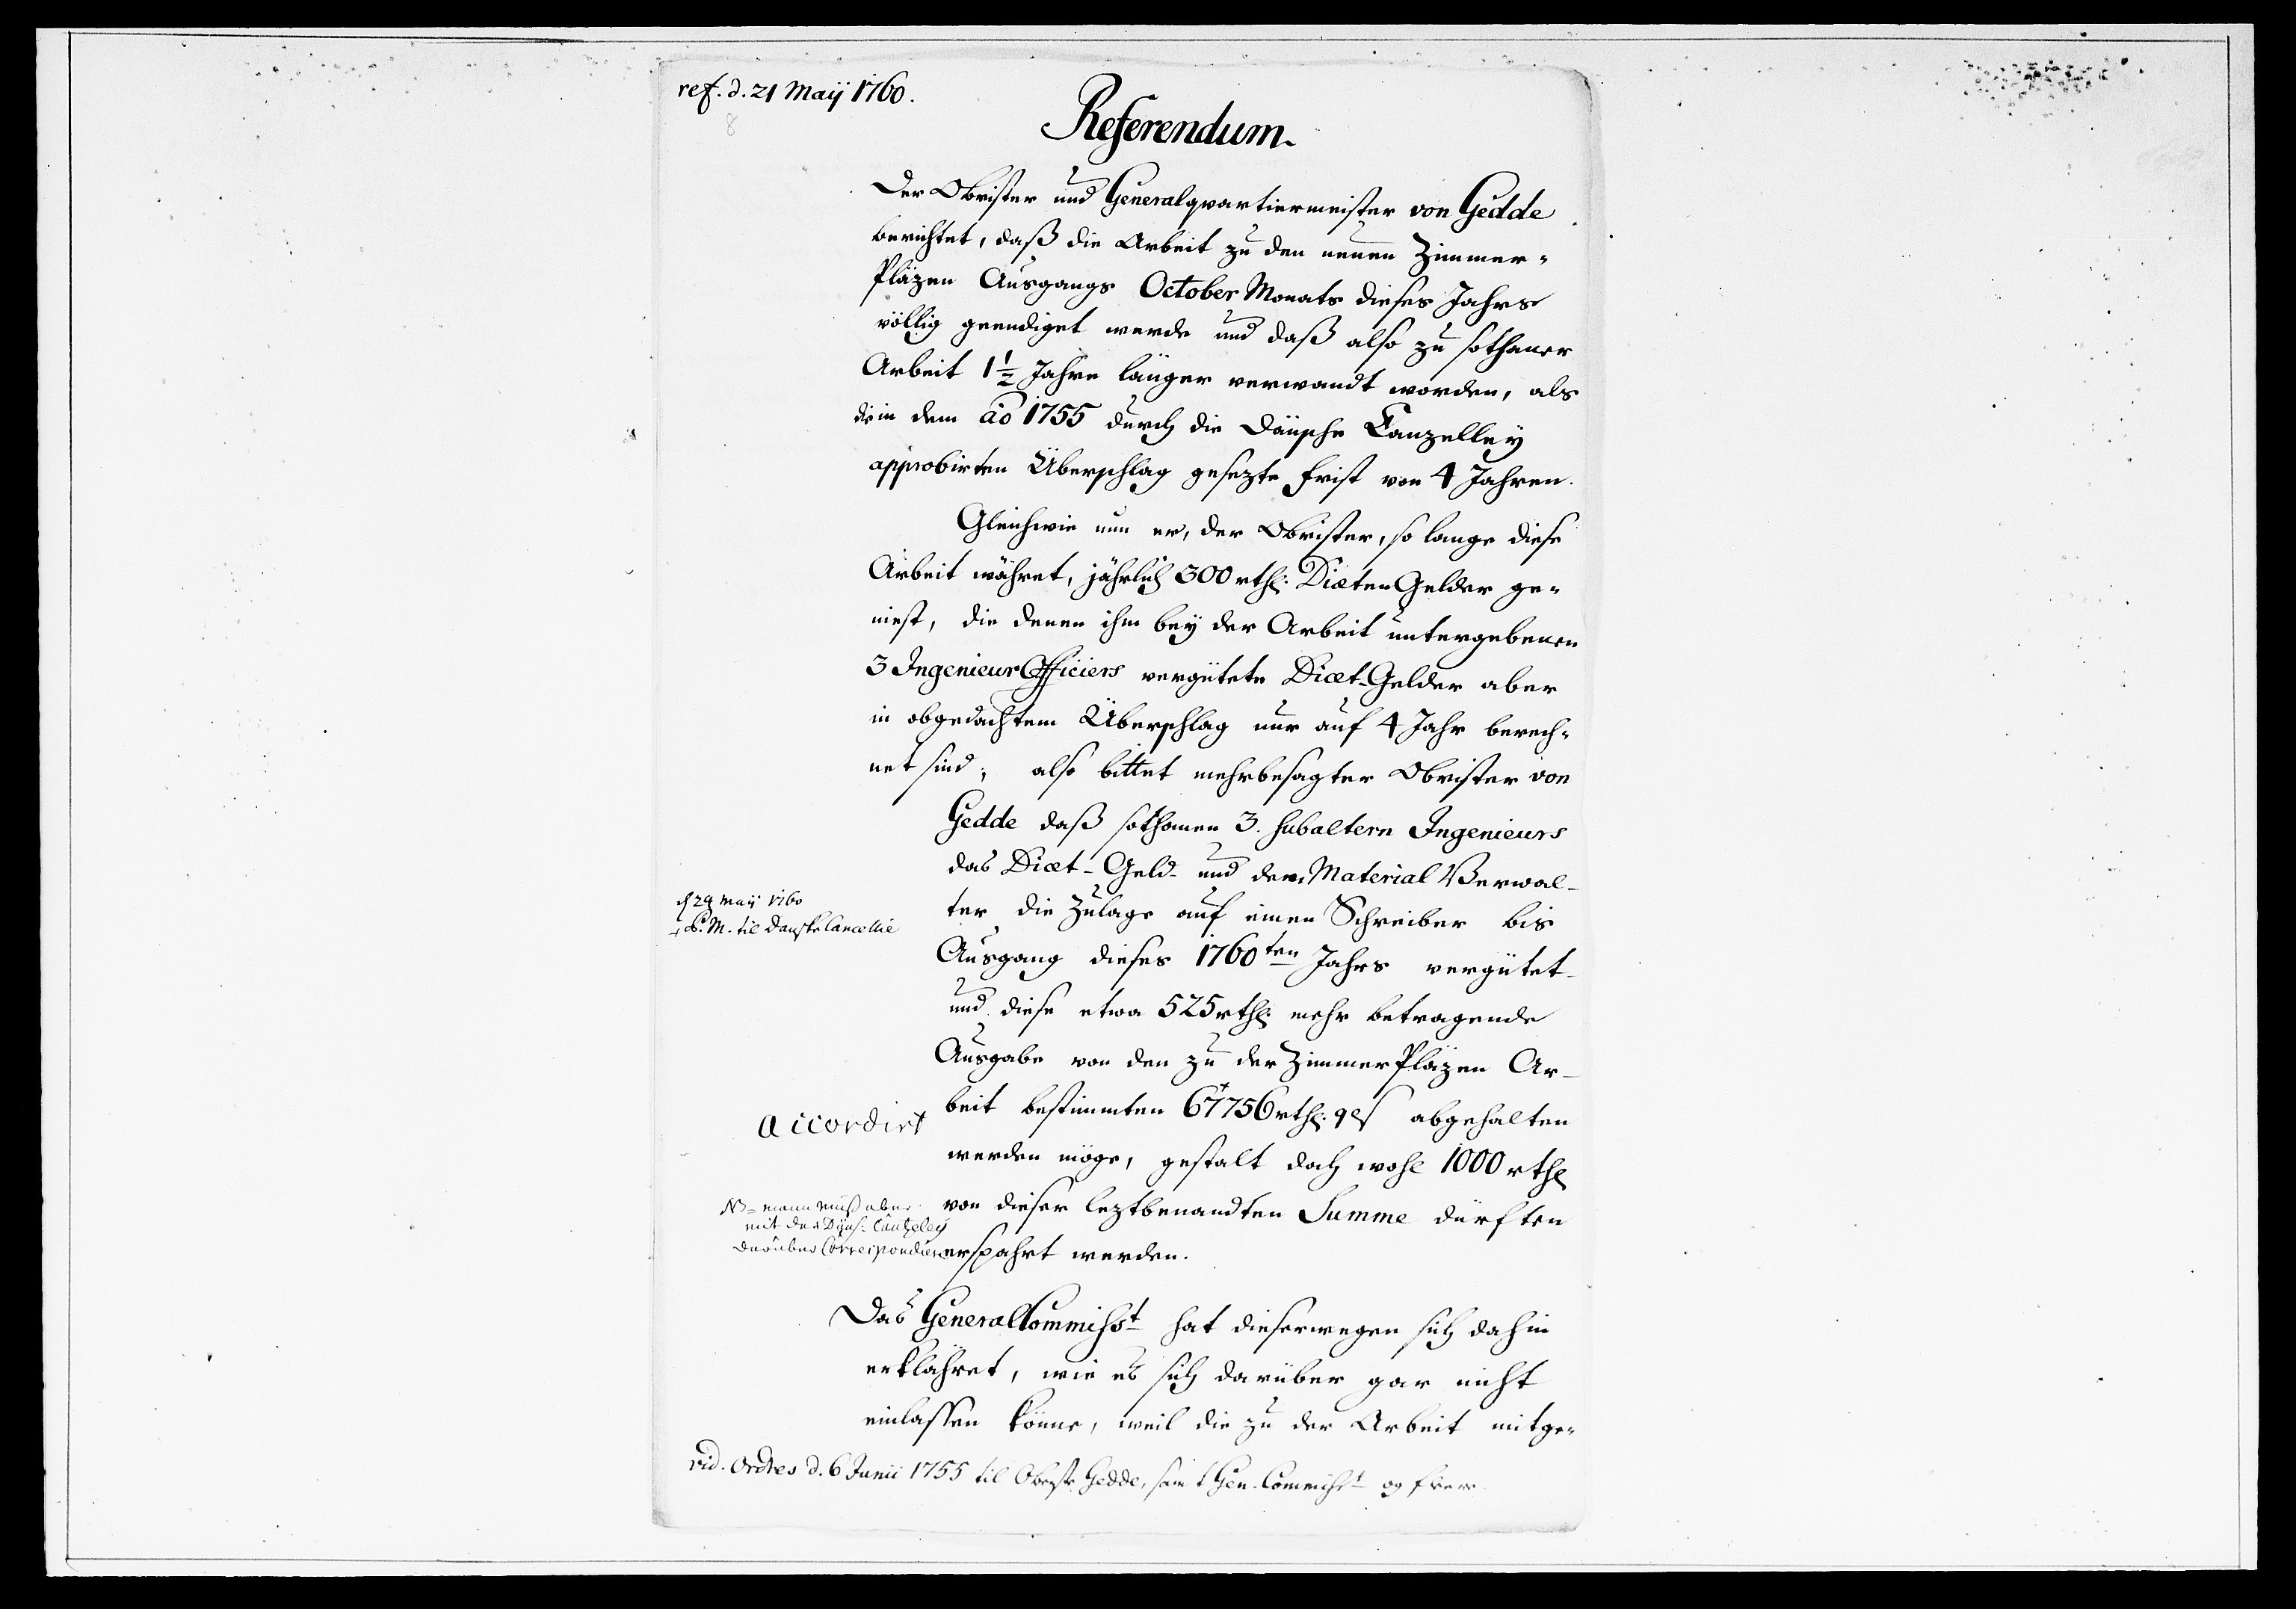 ref. d. 21 Maÿ 1760.
8
Referendum.
Der Obrister und Generalqvartiermeister von Gedde
berichtet, daß die Arbeit zu den neuen Zimmer-
Pläzen Ausgangs October Monats dieses Jahrs
völlig geendiget werde und daß also zu sothaner
Arbeit 1 1/2 Jahre länger verwandt worden, als
die in dem ao 1755 durch die Dänsche Canzelleÿ
approbirten Überschlag gesezte Frist von 4 Jahren.
Gleichwie nun er, der Obrister, so lange diese
Arbeit währet, jährlich 300 rthl. Diæten Gelder ge-
niest, die denen ihm beÿ der Arbeit untergebenen
3 Ingenieur Officiers vergütete Diæt-Gelder aber
in obgedachtem Überschlag nur auf 4 Jahr berech-
net sind; also bittet mehrbesagter Obrister von
Gedde daß sothanen 3. subaltern Ingenieurs
das Diæt-Geld und dem Material Verwal-
ter die Zulage auf einen Schreiber bis
Ausgang dieses 1760ten Jahrs vergütet
und diese etwa 525 rthl. mehr betragende
Ausgabe von den zu der Zimmer Pläzen Ar-
beit bestimmten 67756 rthl. abgehalten
werden möge, gestalt doch wohl 1000 rthl
von dieser leztbenandten Summe dürften
erspahrt werden.
d 29 maÿ 1760
P. M. til Danske Cancellie
accordirt
NB= mann muß aber
mit der Däns. Cantzeley
darüber Correspondiren
Das GeneralCommisst hat dieserwegen sich dahin
erklähret, wie es sich darüber gar nicht
einlassen könne, weil die zu der Arbeit mitge-
vid. Ordres d. 6 Junii 1755 til Obrste Gedde, samt Gen. Commisst og